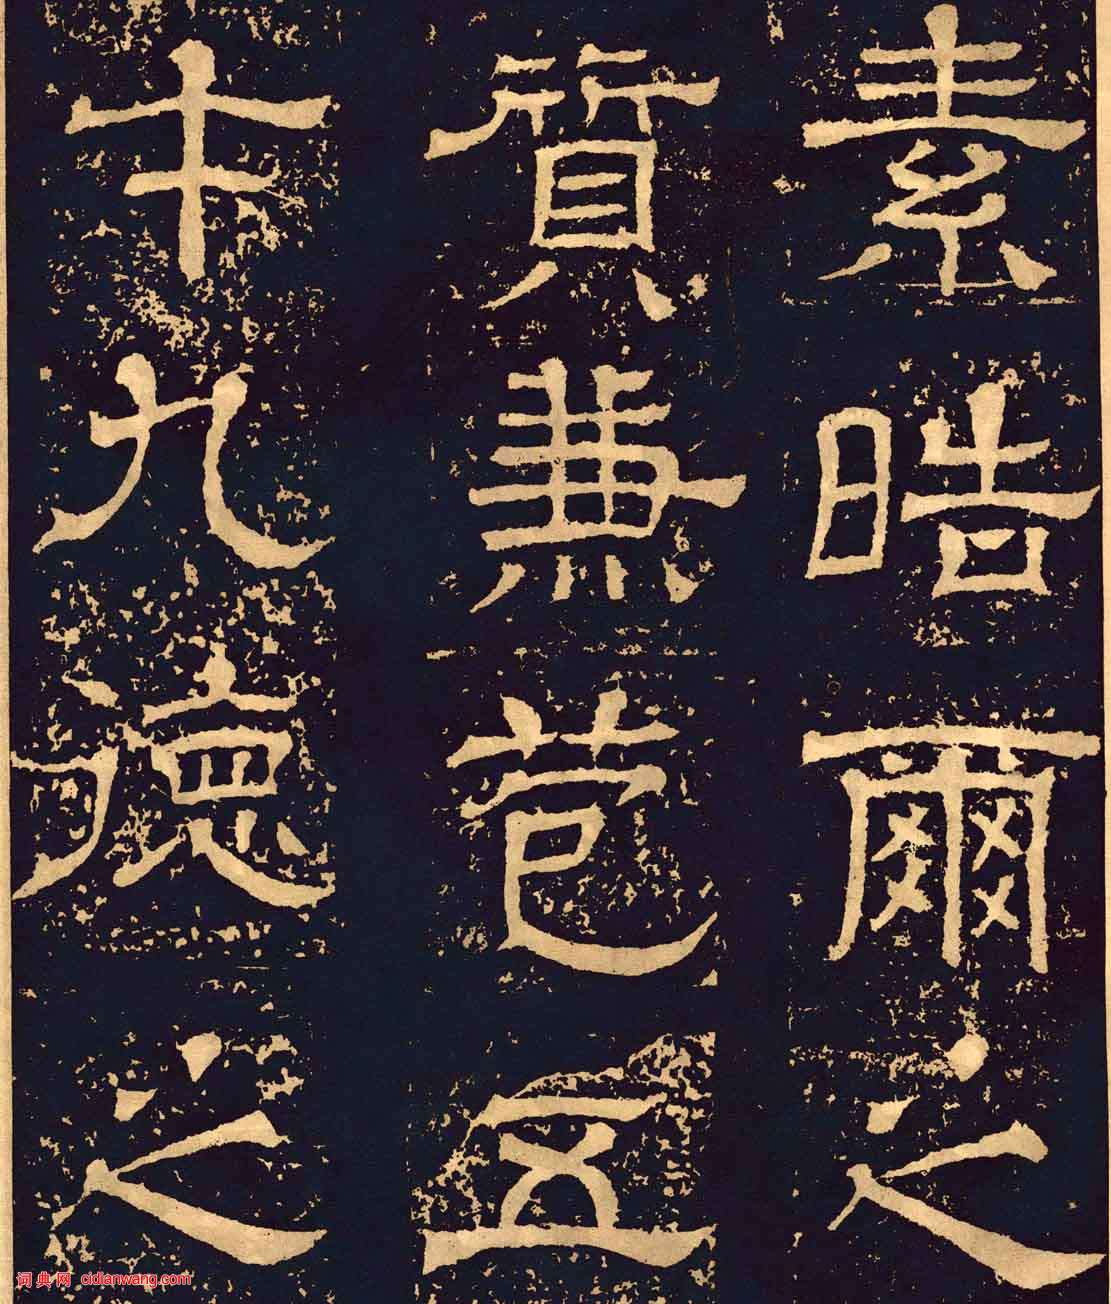 素晧爾之
質兼苞五
才九德之
词典网 cidianwang.com